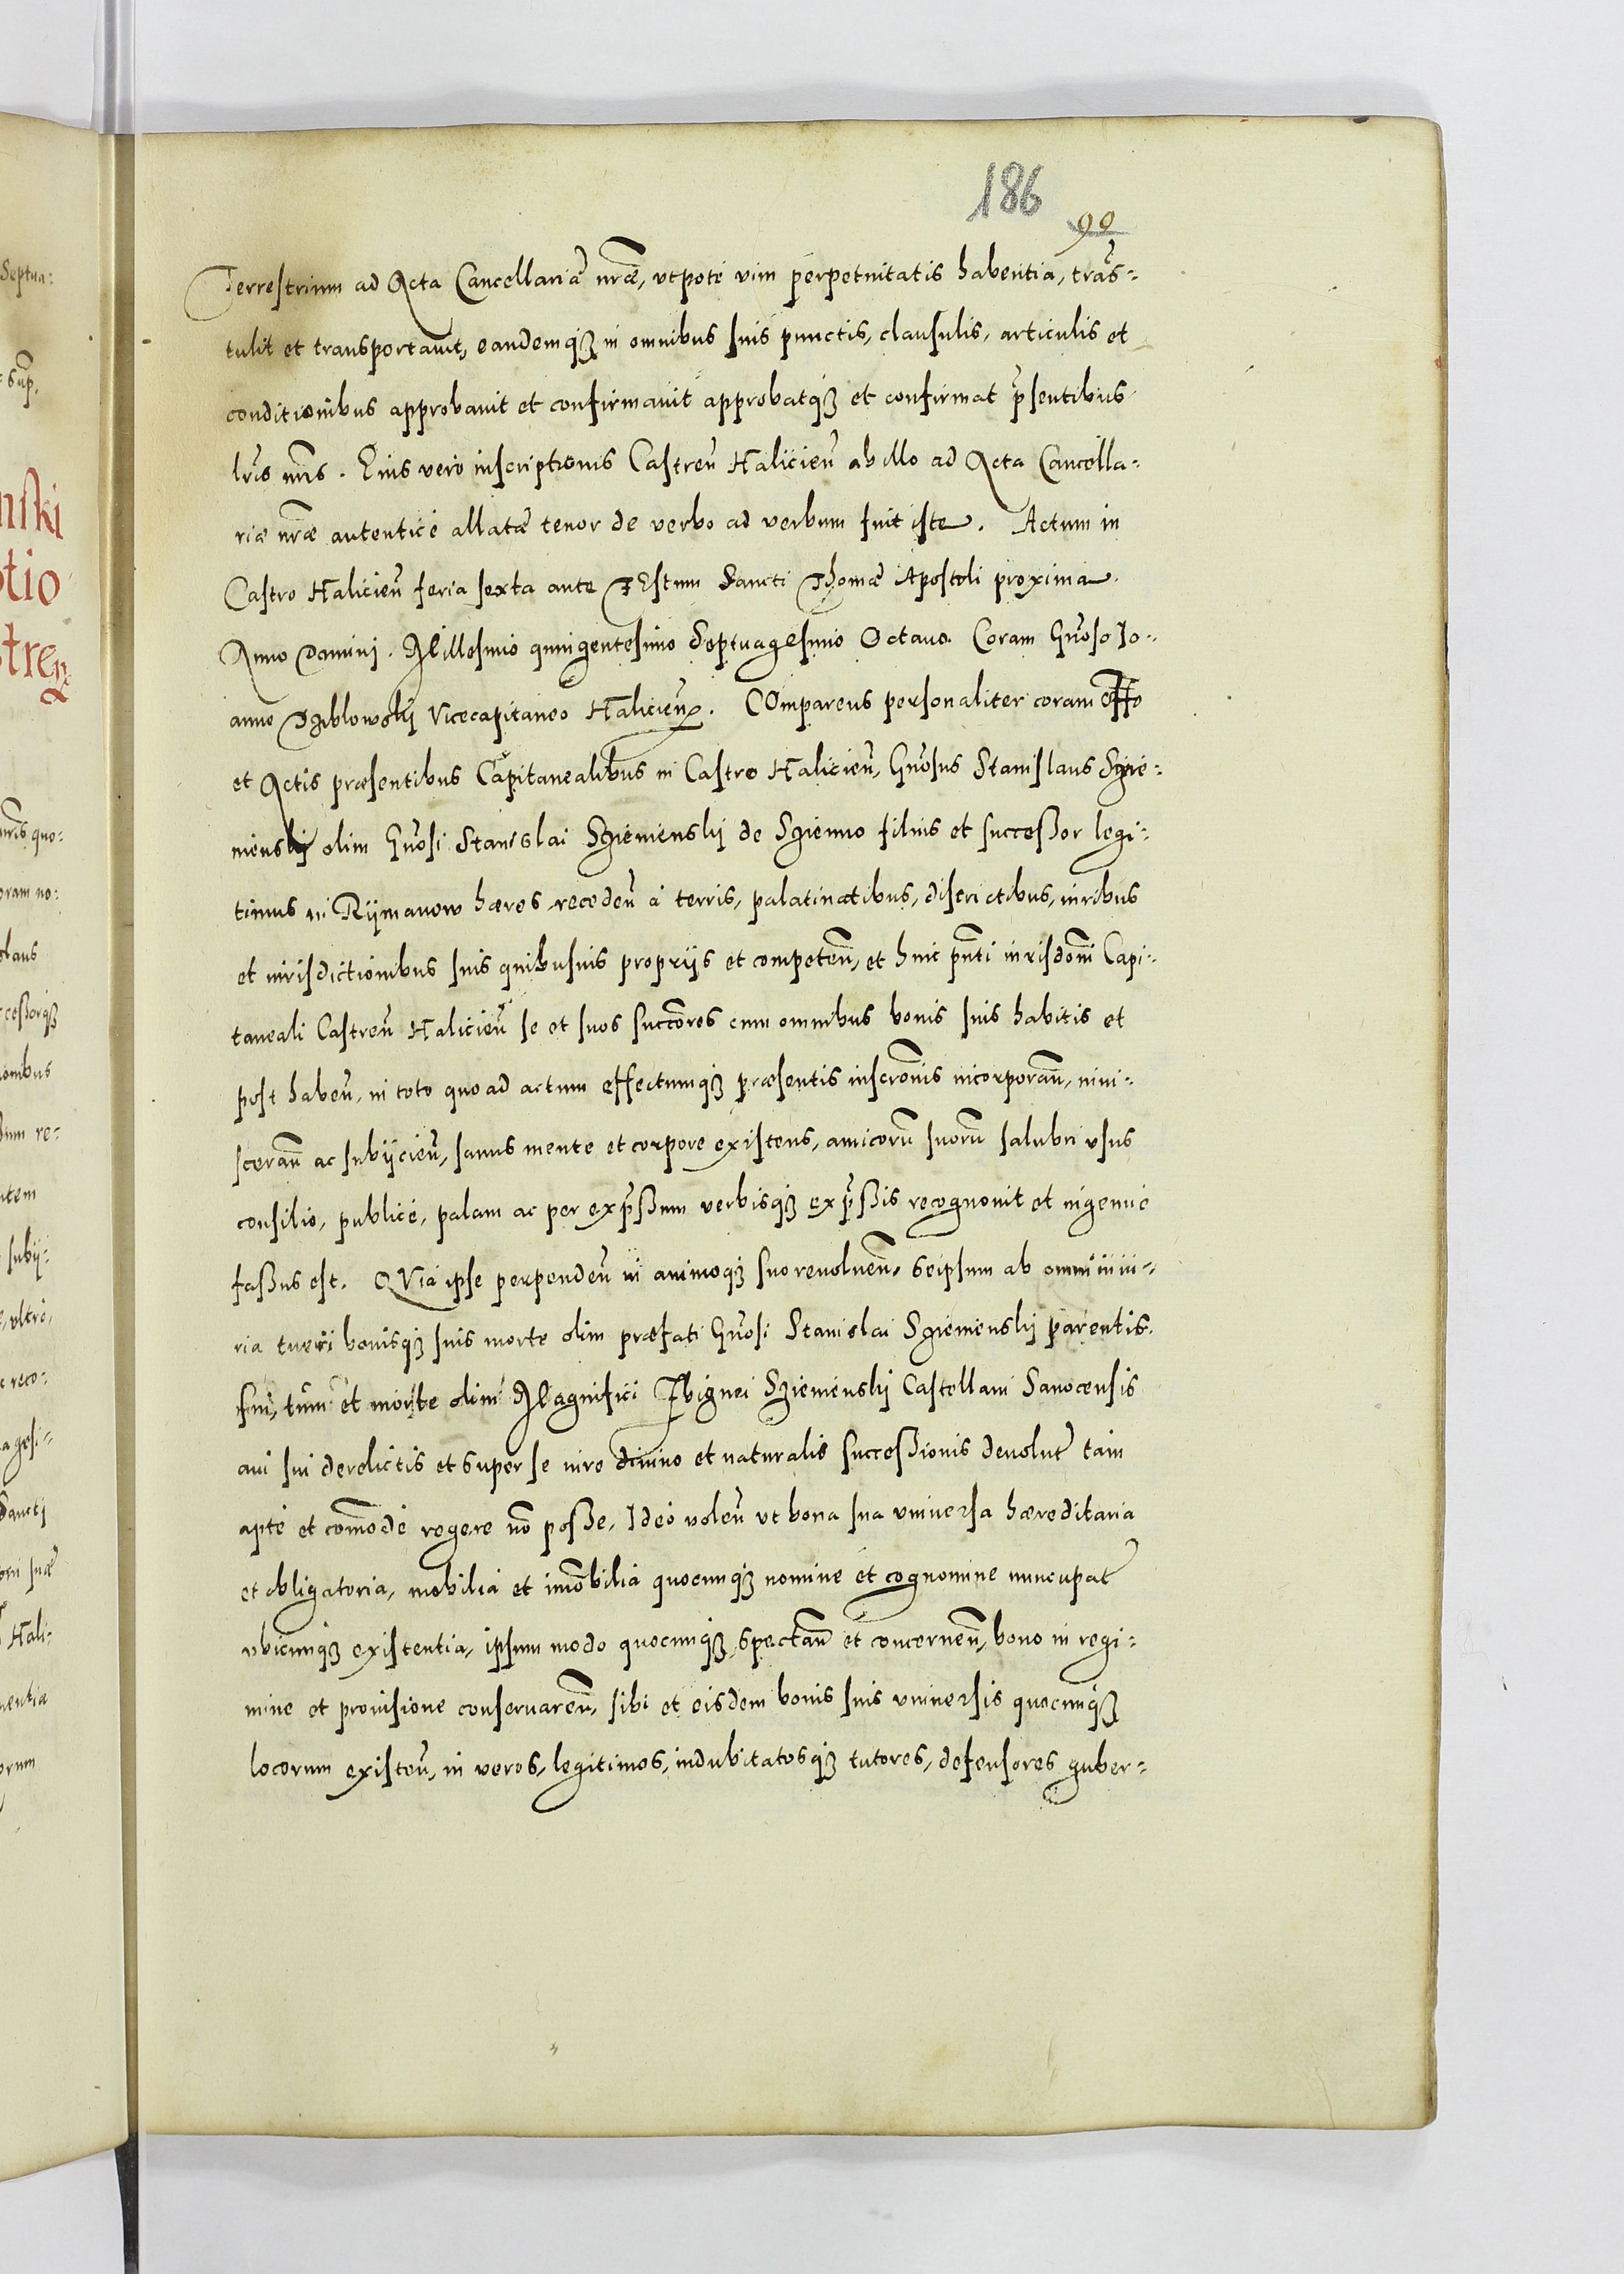 186
99
Terrestrium ad Acta Cancellariæ nr̃æ, vtpote vim perpetuitatis habentia, trãs-
tulit et transportauit, eandemqꝫ in omnibus suis punctis, clausulis, articulis et
conditionibus approbauit et confirmauit approbatqꝫ et confirmat p̃sentibus
lr̃is nr̃is. Eius vero inscriptionis Castreñ Halicieñ ab illo ad Acta Cancella-
riæ nr̃æ autenticè allatæ tenor de verbo ad verbum fuit iste. Actum in
Castro Halicieñ feria sexta ante FEstum Sancti Thomæ Apostoli proxima.
Anno Dominj. Millesimo quingentesimo Septuagesimo Octauo. Coram Gñoso Jo-
anne Vicecapitaneo Halicieñ. COmparens personaliter coram offo
et Actis præsentibus Capitanealibus in Castro Halicieñ, Gñosus Stanislaus Szie-
mienskj olim Gñosi Stanislai Sziemienskj de Sziemio filius et successor legi-
timus in Rijmanow hæres, recedeñ à terris, palatinatibus, districtibus, iuribus
et iurisdictionibus suis quibusuis proprijs et competeñ, et huic p̃nti iurisdoni Capi-
taneali Castreñ Halicieñ se et suos succores cum omnibus bonis suis habitis et
post habeñ, in toto quo ad actum effectumqꝫ præsentis inscronis incorporañ, inui-
scerañ ac subijcieñ, sanus mente et corpore existens, amicorũ suorũ salubri vsus
consilio, publicè, palam ac per exp̃ssum verbisqꝫ exp̃ssis recognouit et ingenue
fassus est. QVia ipse perpendeñ in animoqꝫ suo reuolueñ, seipsum ab omni iniu-
ria tueri bonisqꝫ suis morte olim præfati Gñosi Stanislai Sziemienskj parentis
sui, tum et morte olim Magnifici Zbignei Sziemienskj Castellani Sanocensis
aui sui derelictis et super se iure diuino et naturalis successionis deuolut tam
aptè et comodè regere nõ posse. Ideo voleñ vt bona sua vniuersa hæreditaria
et obligatoria, mobilia et imobilia quocunqꝫ nomine et cognomine nuncupat
vbicunqꝫ existentia, ipsum modo quocunqꝫ spectañ et concerneñ, bono in regi-
mine et prouisione conseruareñ, sibi et eisdem bonis suis vniuersis quocunqꝫ
locorum existeñ, in veros, legitimos, indubitatosqꝫ tutores, defensores guber-